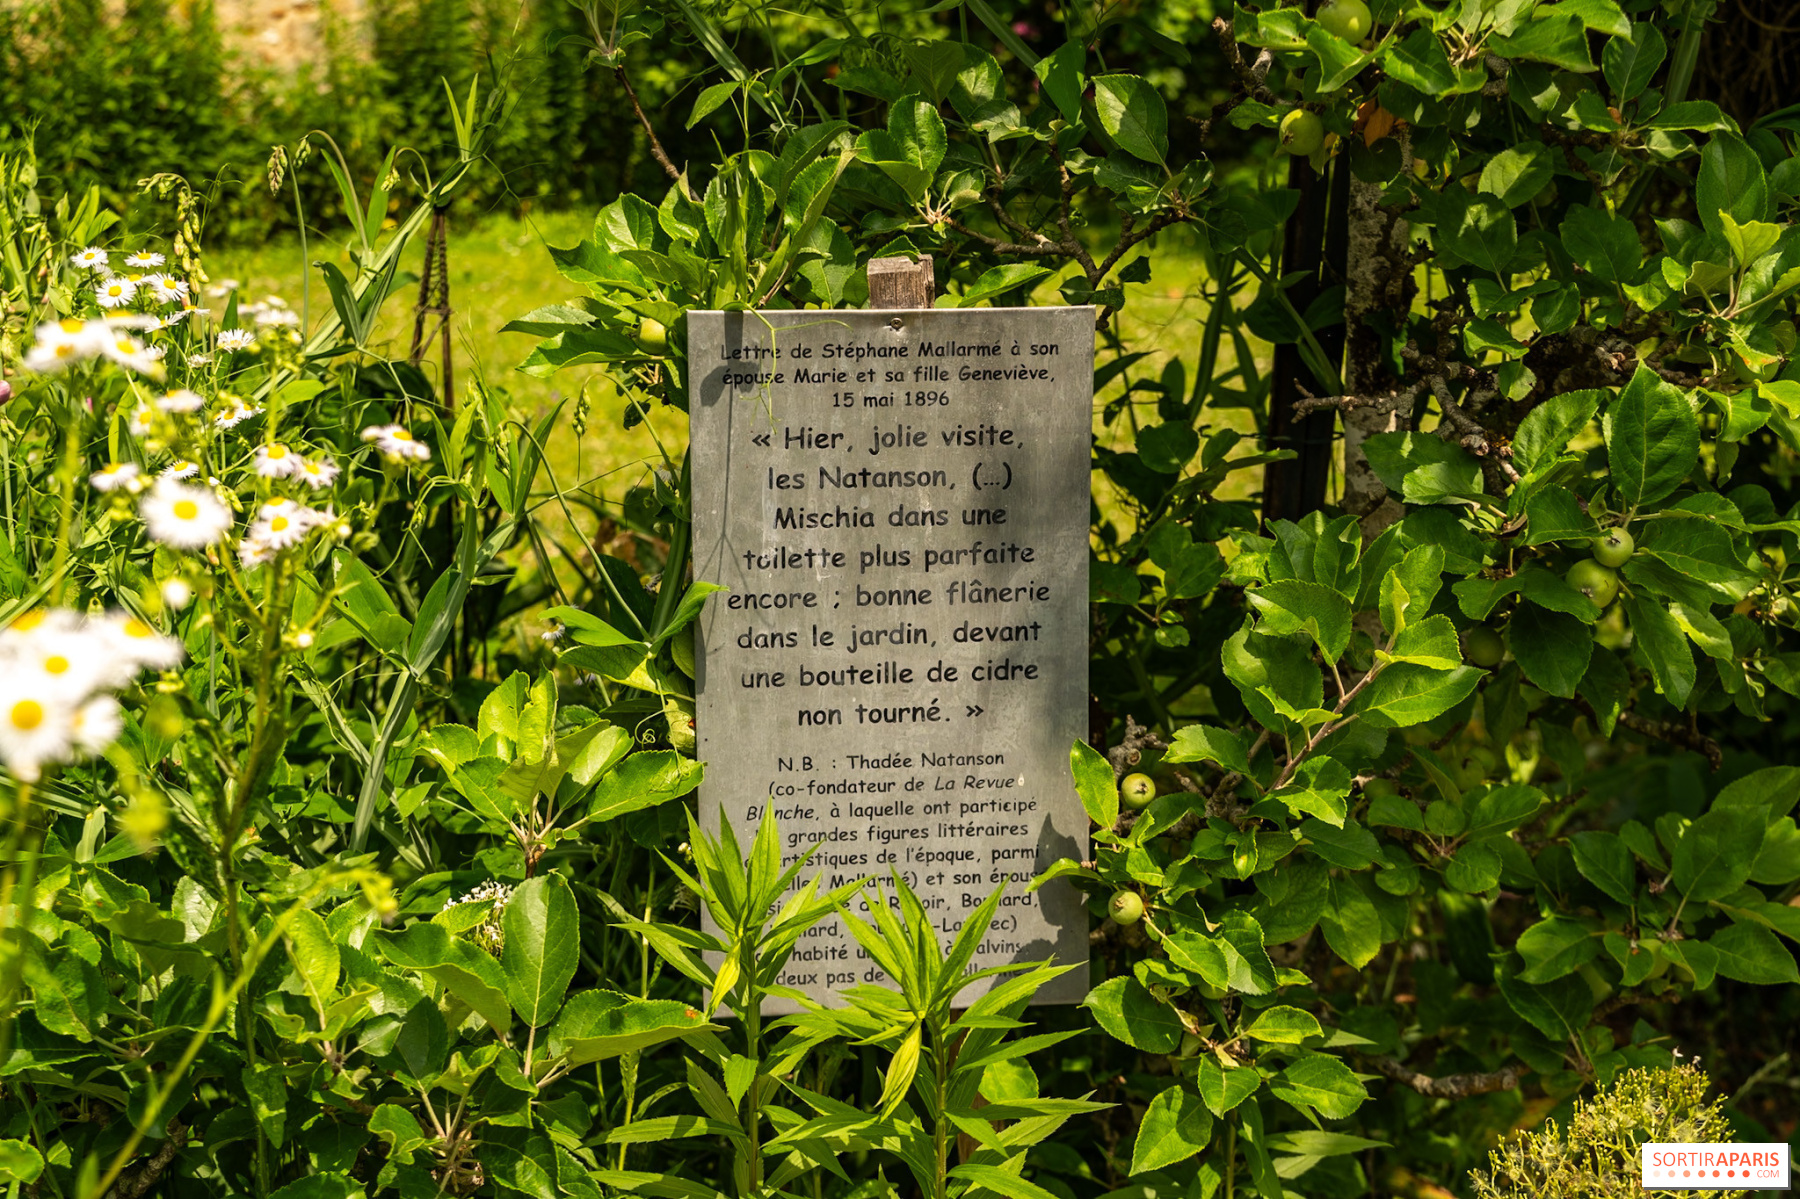 Lettre de Stéphane Mallarmé à son
épouse Marie et sa fille Geneviève,
15 mai 1896
« Hier, jolie visite,
les Natanson, (...)
Mischia dans une
toilette plus parfaite
encore ; bonne flânerie
dans le jardin, devant
une bouteille de cidre
non tourné. »
N.B. : Thadée Natanson
(co-fondateur de La Revue
Blanche, à laquelle ont participé
grandes figures littéraires
artistiques de l'époque, parmi
Mallarmé) et son épouse
Bonnard,
habité
deux pas de
SORTIRAPARIS
.COM